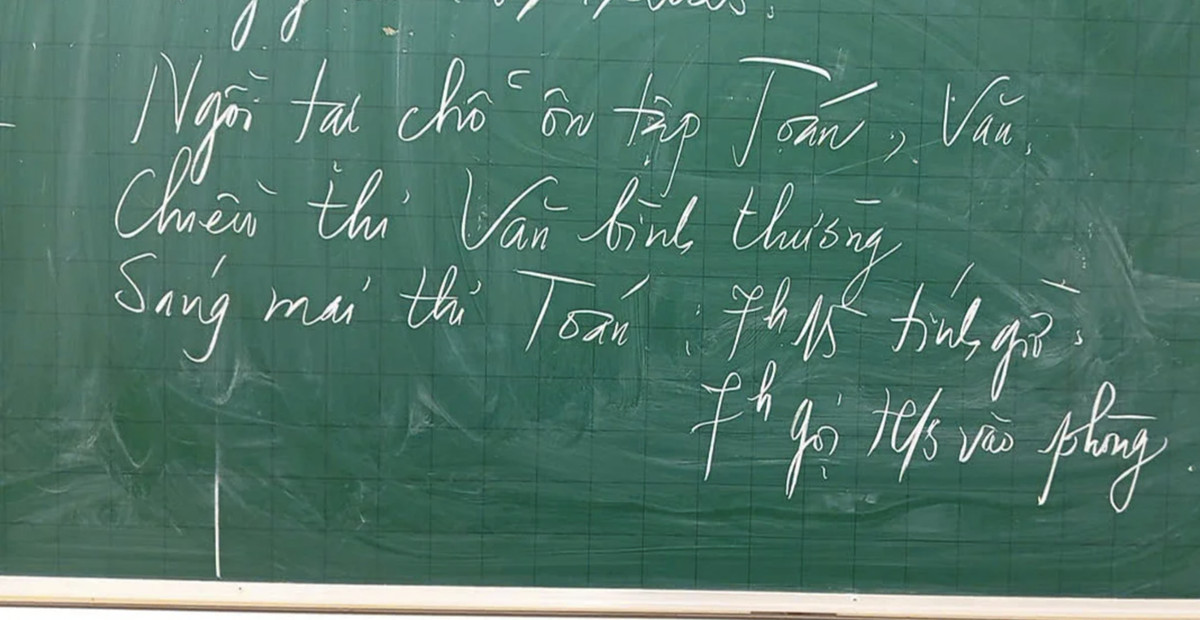 Ngồi tại chỗ ôn tập Toán, Văn.
Chiều thi Văn bình thường
Sáng mai thi Toán : 7h15 tính giờ.
7h gọi H/s vào phòng.